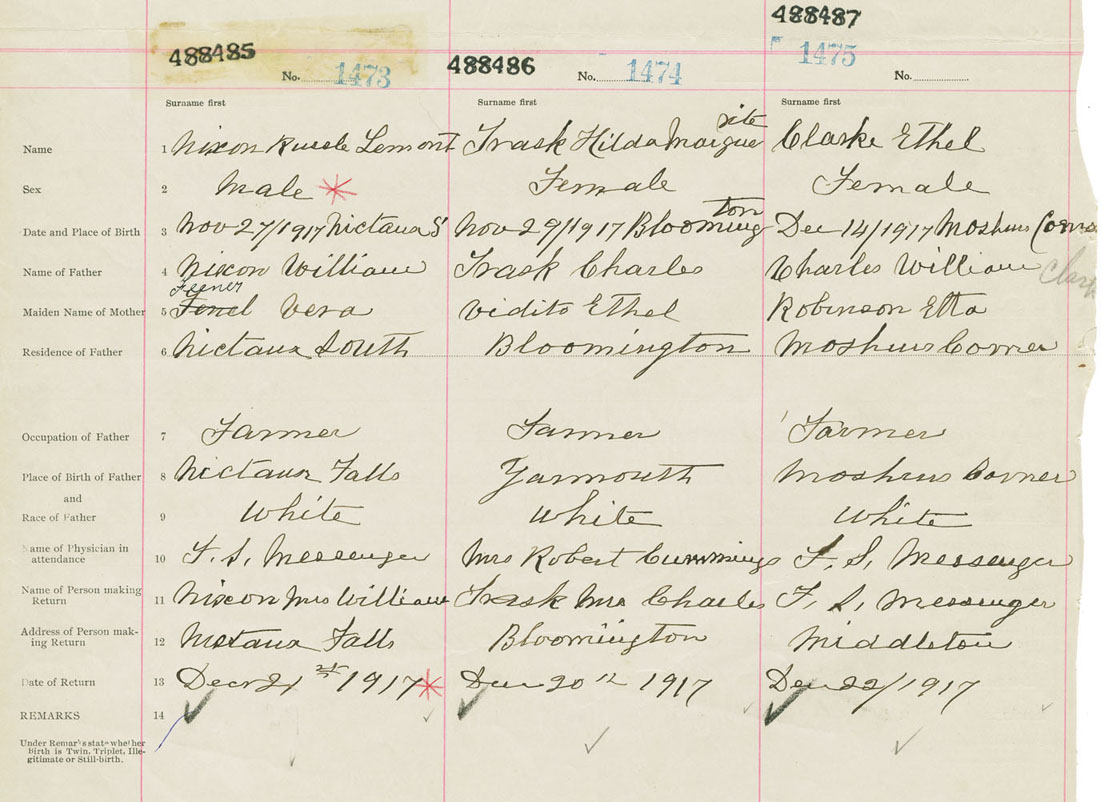 488485 488486 488487
No. 1473 No. 1474 1475 No.
Surname first Surname first Surname first
Name 1 Nixon Lemont Trask Hilda Marguerite Clarke Ethel
Sex 2 Male Female Female
Date and Place of Birth 3 Nov 27/1917 Nictaux S Nov 29/1917 Bloomington Dec 14/1917 Moshers Corner
Name of Father 4 Nixon William Trask Charles Charles William Clark
Feener
Maiden Name of Mother 5 Vera Vidito Ethel Robinson Etta
Residence of Father 6 Nictaux South Bloomington Moshers Corner
Occupation of Father 7 Farmer Farmer Farmer
Place of Birth of Father 8 Nictaux Falls Yarmouth Moshers Corner
and
Race of Father 9 White White White
Name of Physician in
attendance 10 F. S. Messenger Mrs Robert Cummings F. S. Messenger
Name of Person making
Return 11 Nixon Mrs William Trask Mrs Charles F. S. Messenger
Address of Person mak-
ing Return 12 Nictaux Falls Bloomington Middleton
Date of Return 13 Decr 21st 1917 Dec 20th 1917 Dec 22/1917
REMARKS 14
Under Remarks state whether
Birth is Twin, Triplet, Ille-
gitimate or Still-birth.